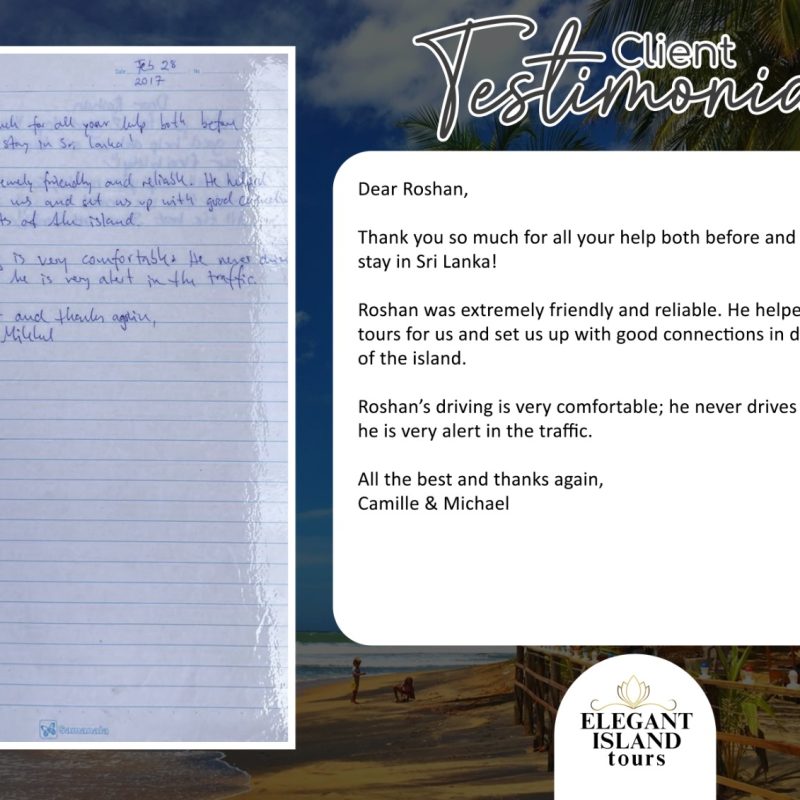 Date Feb 28 No
2017
for all your help both before
stay in Sri Lanka!
friendly and reliable. He helped
us and set us up with good
of the island.
is very comfortable. He never
he is very alert in the traffic.
and thanks again,
Samanala
Client
Testimonia
Dear Roshan,
Thank you so much for all your help both before and
stay in Sri Lanka!
Roshan was extremely friendly and reliable. He helpe
tours for us and set us up with good connections in d
of the island.
Roshan’s driving is very comfortable; he never drives
he is very alert in the traffic.
All the best and thanks again,
Camille & Michael
ELEGANT
ISLAND
tours